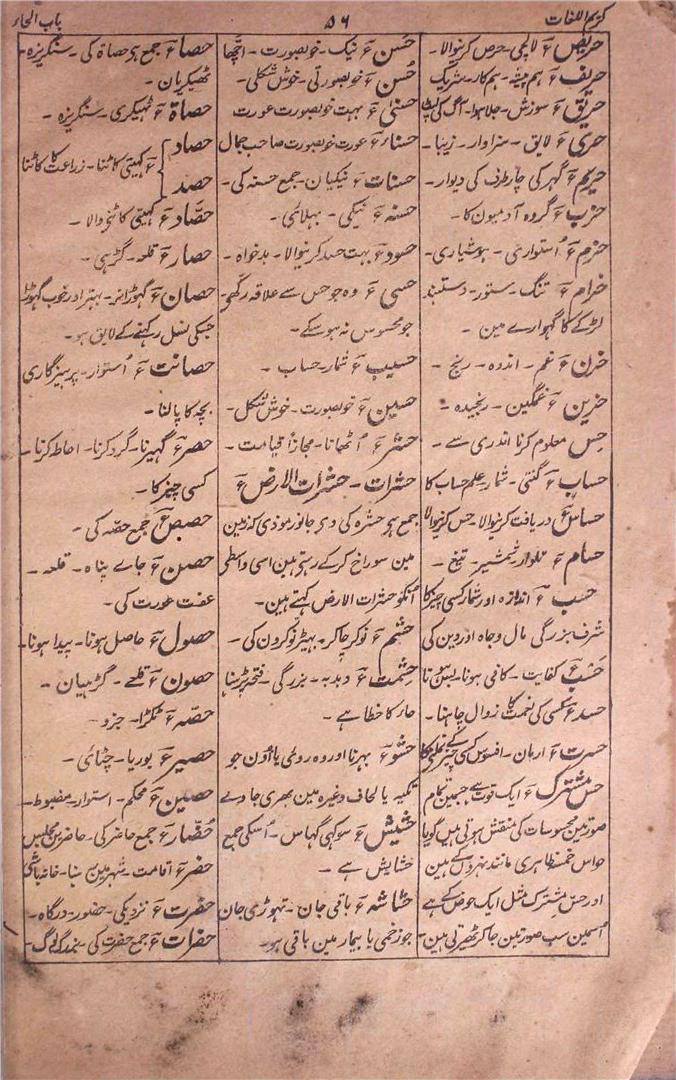 کریم اللغات
۵۶
باب الحاء
حریص ؏ لالچی۔ حرص کرنیوالا۔
حریف ؏ ہم پیشہ۔ ہم کار۔ شریک
حریق ؏ سوزش۔ جلا ہوا۔ آگ کی لپٹ
حری ؏ لایق۔ سزاوار۔ زیبا۔
حریم ؏ گھر کی چار طرف کی دیوار۔
حزب ؏ گروہ آدمیون کا۔
حزم ؏ اُستواری۔ ہوشیاری۔
حزام ؏ تنگ۔ ستور۔ دستبند
لڑکے کا گہوارے مین۔
حزن ؏ غم۔ اندوہ۔ رنج۔
حزین ؏ غمگین۔ رنجیدہ۔
حِس معلوم کرنا اندری سے۔
حساب ؏ گنتی۔ شمار۔ علم حساب کا
حساس ؏ دریافت کرنیوالا۔ حس کرنیوالا
حسام ؏ تلوار۔ شمشیر۔ تیغ۔
حسب ؏ اندازہ اور شمار کسی چیز کا
شرف بزرگی مال و جاہ اور دین کی
حَسْب ؏ کفایت۔ کافی ہونا۔ بس ہونا
حسد ؏ کسی کی نعمت کا زوال چاہنا۔
حسرت ؏ ارمان۔ افسوس کسی چیز کے نملنے کا
حس مشترک ؏ ایک قوت ہے جسمین تمام
صورتین محسوسات کی منقش ہوتی ہین گویا
حواس خمسہ ظاہری مانند نہرون کے ہین
اور حس مشترک مثل ایک حوض کے ہے
اُسمین سب صورتین جا کر ٹھیرتی ہین۔
حَسَن ؏ نیک۔ خوبصورت۔ اچھا
حُسن ؏ خوبصورتی۔ خوش شکلی۔
حسنیٰ ؏ بہت خوبصورت عورت
حسناء ؏ عورت خوبصورت صاحب جمال
حسنات ؏ نیکیان۔ جمع حسنہ کی۔
حسنہ ؏ نیکی۔ بہلائی۔
حسود ؏ بہت حسد کرنیوالا۔ بدخواہ۔
حسی ؏ وہ جو حس سے علاقہ رکھے۔
جو محسوس نہ ہوسکے۔
حسیب ؏ شمار۔ حساب۔
حسین ؏ خوبصورت۔ خوش شکل۔
حشر ؏ اُٹھانا۔ مجازاً قیامت۔
حشرات۔ حشرات الارض ؏
جمع ہے حشرہ کی وہ جانور موذی کہ زمین
مین سوراخ کر کے رہتے ہین اسی واسطے
اُنکو حشرات الارض کہتے ہین۔
حشم ؏ نوکر چاکر۔ بھیڑ نوکرون کی۔
حِشمت ؏ دبدبہ۔ بزرگی۔ فتحہ پڑھنا
حاء کا خطا ہے۔
حشو ؏ بہرنا اور وہ روئی یا اُون جو
تکیہ یا لحاف وغیرہ مین بھری جاوے
حشیش ؏ سوکہی گہاس۔ اُسکی جمع
حشایش ہے۔
حشاشہ ؏ باقی جان۔ تہوڑی جان
جو زخمی یا بیمار مین باقی ہو۔
حصاء ؏ جمع ہے حصاۃ کی۔ سنگریزہ۔
ٹھیکریان۔
حصاۃ ؏ ٹھیکری۔ سنگریزہ۔
حصاد
حصد
؏ کہیتی کاٹنا۔ زراعت کا کاٹنا
حصّاد ؏ کہیتی کاٹنے والا۔
حصار ؏ قلعہ۔ گڑہی۔
حصان ؏ گہوڑا نر۔ بہتر اور خوب گہوڑا
جسکی نسل رکھنے کے لایق ہو۔
حصانت ؏ اُستوار۔ پرہیزگاری
بچہ کا پالنا۔
حصر ؏ گہیرنا۔ گرد کرنا۔ احاطہ کرنا۔
کسی چیز کا۔
حصص ؏ جمع حصّہ کی۔
حصن ؏ جاے پناہ۔ قلعہ۔
عفت عورت کی۔
حصول ؏ حاصل ہونا۔ پیدا ہونا۔
حصون ؏ قلعے۔ گڑہیان۔
حصّہ ؏ ٹکڑا۔ جزو۔
حصیر ؏ بوریا۔ چٹائی۔
حصین ؏ محکم۔ استوار۔ مضبوط۔
حُضّار ؏ جمع حاضر کی۔ حاضرین مجلس
حضر ؏ اقامت۔ شہر مین رہنا۔ خانہ باشی
حضرت ؏ نزدیکی۔ حضور۔ درگاہ۔
حضرات ؏ جمع حضرت کی۔ بزرگ لوگ۔